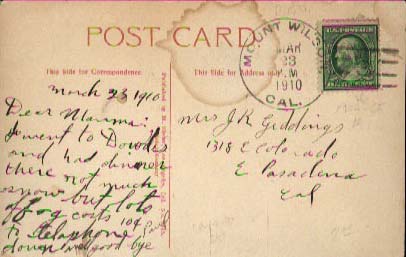 POST CARD
This Side for Correspondence
This Side for Address only
MOUNT WILSON
MAR
23
M
1910
CAL.
March 23 1910
Dear Mamma:
I went to Dowds
and had dinner
there not much
snow but lots
of fog costs 10¢
to telephone
down good bye
Mrs J R Giddings
1318 E Colorado
E Pasadena
Cal